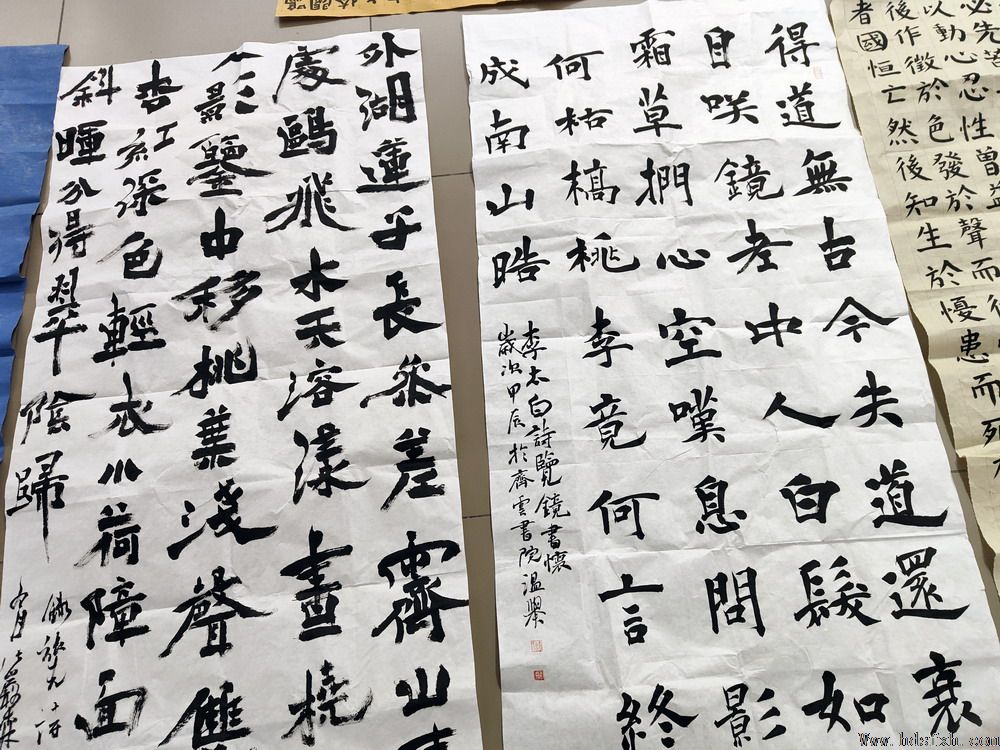 必先
以動心忍性曾益
後作徵於色發於聲而後
者國恒亡然後知生於憂患而死
得道無古今失道還衰
自咲鏡老中人白髮如
霜草捫心空嘆息問影
何枯槁桃李竟何言終
成南山晧
李太白詩覽鏡書懷
歲次甲辰於齊雲書院溫
外湖蓮子長參差霽山青
處鷗飛水天溶漾畫橈
人影鑒中移桃葉淺聲雙
杏紅深色輕衣小荷障面
斜暉分得翠陰歸